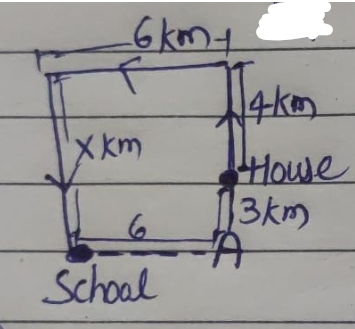 6km
4km
xkm
House
3km
6
A
School